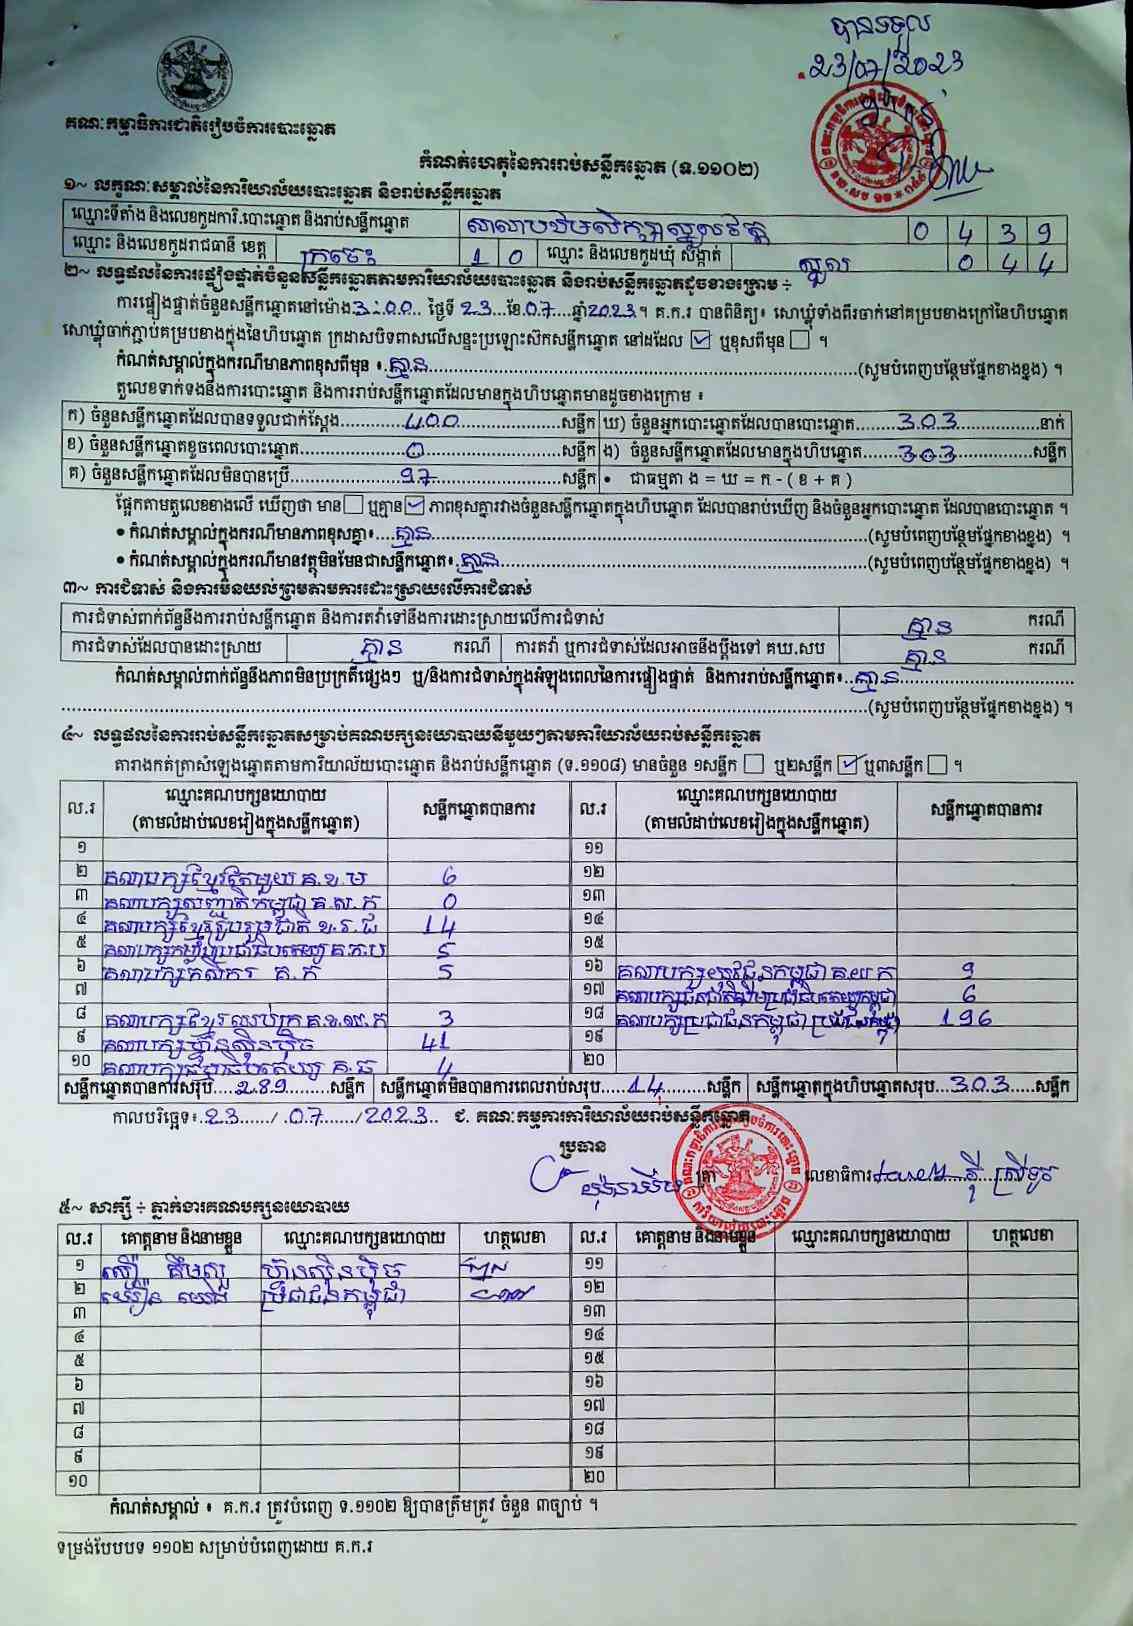 បានទទួល
23/07/2023
គណៈកម្មាធិការជាតិរៀបចំការបោះឆ្នោត
កំណត់ហេតុនៃការរាប់សន្លឹកឆ្នោត (ទ.១១០២)
១~ លក្ខណៈសម្គាល់នៃការិយាល័យបោះឆ្នោត និងរាប់សន្លឹកឆ្នោត
ឈ្មោះទីតាំង និងលេខកូដការិ.បោះឆ្នោត និងរាប់សន្លឹកឆ្នោត សាលាបឋមសិក្សាស្នួលវត្ត 0 4 3 9
ឈ្មោះ និងលេខកូដរាជធានី ខេត្ត ក្រចេះ 1 0 ឈ្មោះ និងលេខកូដឃុំ សង្កាត់ ស្នួល 0 4 4
២~ លទ្ធផលនៃការផ្ទៀងផ្ទាត់ចំនួនសន្លឹកឆ្នោតតាមការិយាល័យបោះឆ្នោត និងរាប់សន្លឹកឆ្នោតដូចខាងក្រោម ÷
ការផ្ទៀងផ្ទាត់ចំនួនសន្លឹកឆ្នោតនៅម៉ោង 3:00 ថ្ងៃទី 23 ខែ 07 ឆ្នាំ 2023 ។ គ.ក.រ បានពិនិត្យ៖ សោឃ្លុំទាំងពីរចាក់នៅគម្របខាងក្រៅនៃហិបឆ្នោត
សោឃ្លុំចាក់ភ្ជាប់គម្របខាងក្នុងនៃហិបឆ្នោត ក្រដាសបិទពាសលើសន្ទះប្រឡោះស៊កសន្លឹកឆ្នោត នៅដដែល ☑ ឬខុសពីមុន ☐ ។
កំណត់សម្គាល់ក្នុងករណីមានភាពខុសពីមុន ៖ គ្មាន (សូមបំពេញបន្ថែមផ្នែកខាងខ្នង) ។
តួលេខទាក់ទងនឹងការបោះឆ្នោត និងការរាប់សន្លឹកឆ្នោតដែលមានក្នុងហិបឆ្នោតមានដូចខាងក្រោម ៖
ក) ចំនួនសន្លឹកឆ្នោតដែលបានទទួលជាក់ស្តែង 400 សន្លឹក ឃ) ចំនួនអ្នកបោះឆ្នោតដែលបានបោះឆ្នោត 303 នាក់
ខ) ចំនួនសន្លឹកឆ្នោតខូចពេលបោះឆ្នោត 0 សន្លឹក ង) ចំនួនសន្លឹកឆ្នោតដែលមានក្នុងហិបឆ្នោត 303 សន្លឹក
គ) ចំនួនសន្លឹកឆ្នោតដែលមិនបានប្រើ 97 សន្លឹក • ជាធម្មតា ង = ឃ = ក - ( ខ + គ )
ផ្អែកតាមតួលេខខាងលើ ឃើញថា មាន ☐ ឬគ្មាន ☑ ភាពខុសគ្នារវាងចំនួនសន្លឹកឆ្នោតក្នុងហិបឆ្នោត ដែលបានរាប់ឃើញ និងចំនួនអ្នកបោះឆ្នោត ដែលបានបោះឆ្នោត ។
• កំណត់សម្គាល់ក្នុងករណីមានភាពខុសគ្នា៖ គ្មាន (សូមបំពេញបន្ថែមផ្នែកខាងខ្នង) ។
• កំណត់សម្គាល់ក្នុងករណីមានវត្ថុមិនមែនជាសន្លឹកឆ្នោត៖ គ្មាន (សូមបំពេញបន្ថែមផ្នែកខាងខ្នង) ។
៣~ ការជំទាស់ និងការមិនយល់ព្រមតាមការដោះស្រាយលើការជំទាស់
ការជំទាស់ពាក់ព័ន្ធនឹងការរាប់សន្លឹកឆ្នោត និងការតវ៉ាទៅនឹងការដោះស្រាយលើការជំទាស់ គ្មាន ករណី
ការជំទាស់ដែលបានដោះស្រាយ គ្មាន ករណី ការតវ៉ា ឬការជំទាស់ដែលអាចនឹងប្តឹងទៅ គឃ.សប គ្មាន ករណី
កំណត់សម្គាល់ពាក់ព័ន្ធនឹងភាពមិនប្រក្រតីផ្សេងៗ ឬ/និងការជំទាស់ក្នុងអំឡុងពេលនៃការផ្ទៀងផ្ទាត់ និងការរាប់សន្លឹកឆ្នោត៖ គ្មាន
(សូមបំពេញបន្ថែមផ្នែកខាងខ្នង) ។
៤~ លទ្ធផលនៃការរាប់សន្លឹកឆ្នោតសម្រាប់គណបក្សនយោបាយនីមួយៗតាមការិយាល័យរាប់សន្លឹកឆ្នោត
តារាងកត់ត្រាសំឡេងឆ្នោតតាមការិយាល័យបោះឆ្នោត និងរាប់សន្លឹកឆ្នោត (ទ.១១០៨) មានចំនួន ១សន្លឹក ☐ ឬ២សន្លឹក ☑ ឬ៣សន្លឹក ☐ ។
ល.រ ឈ្មោះគណបក្សនយោបាយ (តាមលំដាប់លេខរៀងក្នុងសន្លឹកឆ្នោត) សន្លឹកឆ្នោតបានការ ល.រ ឈ្មោះគណបក្សនយោបាយ (តាមលំដាប់លេខរៀងក្នុងសន្លឹកឆ្នោត) សន្លឹកឆ្នោតបានការ
១ ១១
២ គណបក្សខ្មែរតែមួយ គ.ខ.ម 6 ១២
៣ គណបក្សសញ្ជាតិកម្ពុជា គ.ស.ក 0 ១៣
៤ គណបក្សខ្មែររួបរួមជាតិ ខ.រ.ជ 14 ១៤
៥ គណបក្សកម្លាំងប្រជាធិបតេយ្យ គ.ក.ប 5 ១៥
៦ គណបក្សកសិករ គ.ក 5 ១៦ គណបក្សយុវជនកម្ពុជា គ.យ.ក 9
៧ ១៧ គណបក្សជនជាតិដើមប្រជាធិបតេយ្យកម្ពុជា 6
៨ គណបក្សខ្មែរឈប់ក្រ គ.ខ.ឈ.ក 3 ១៨ គណបក្សប្រជាជនកម្ពុជា 196
៩ គណបក្សហ៊្វុនស៊ិនប៉ិច 41 ១៩
១០ គណបក្សធម្មាធិបតេយ្យ គ.ធ 4 ២០
សន្លឹកឆ្នោតបានការសរុប 289 សន្លឹក សន្លឹកឆ្នោតមិនបានការពេលរាប់សរុប 14 សន្លឹក សន្លឹកឆ្នោតក្នុងហិបឆ្នោតសរុប 303 សន្លឹក
កាលបរិច្ឆេទ៖ 23 / 07 / 2023 ជ. គណៈកម្មការការិយាល័យរាប់សន្លឹកឆ្នោត
ប្រធាន
ត្រា លេខាធិការ
៥~ សាក្សី ÷ ភ្នាក់ងារគណបក្សនយោបាយ
ល.រ គោត្តនាម និងនាមខ្លួន ឈ្មោះគណបក្សនយោបាយ ហត្ថលេខា ល.រ គោត្តនាម និងនាមខ្លួន ឈ្មោះគណបក្សនយោបាយ ហត្ថលេខា
១ ហ៊្វុនស៊ិនប៉ិច ១១
២ ប្រជាជនកម្ពុជា ១២
៣ ១៣
៤ ១៤
៥ ១៥
៦ ១៦
៧ ១៧
៨ ១៨
៩ ១៩
១០ ២០
កំណត់សម្គាល់ ៖ គ.ក.រ ត្រូវបំពេញ ទ.១១០២ ឱ្យបានត្រឹមត្រូវ ចំនួន ៣ច្បាប់ ។
ទម្រង់បែបបទ ១១០២ សម្រាប់បំពេញដោយ គ.ក.រ